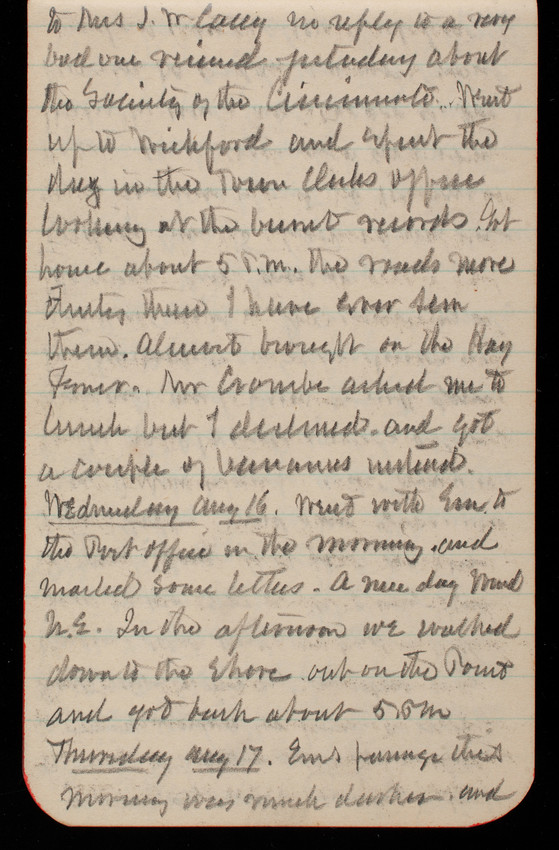 to Mrs J. W. Casey no reply to a very
bad one received yesterday about
the Society of the Cincinnati. Went
up to Wickford and spent the
day in the Town Clerks office
looking at the burnt records. Got
home about 5 P.M. the roads more
dusty than I have ever seen
them. Almost brought on the Hay
Fever. Mr Crombe asked me to
lunch but I declined and got
a couple of bananas instead.
Wednesday Aug 16. Went with Em to
the Post office in the morning and
mailed some letters. A nice day wind
N.E. In the afternoon we walked
down to the Shore out on the Point
and got back about 5 P.M
Thursday Aug 17. Ems passage this
morning was much darker and